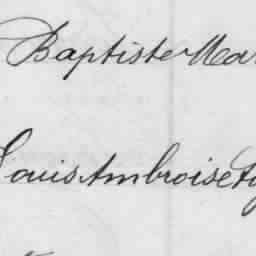 Baptiste Mar
Louis Ambroise